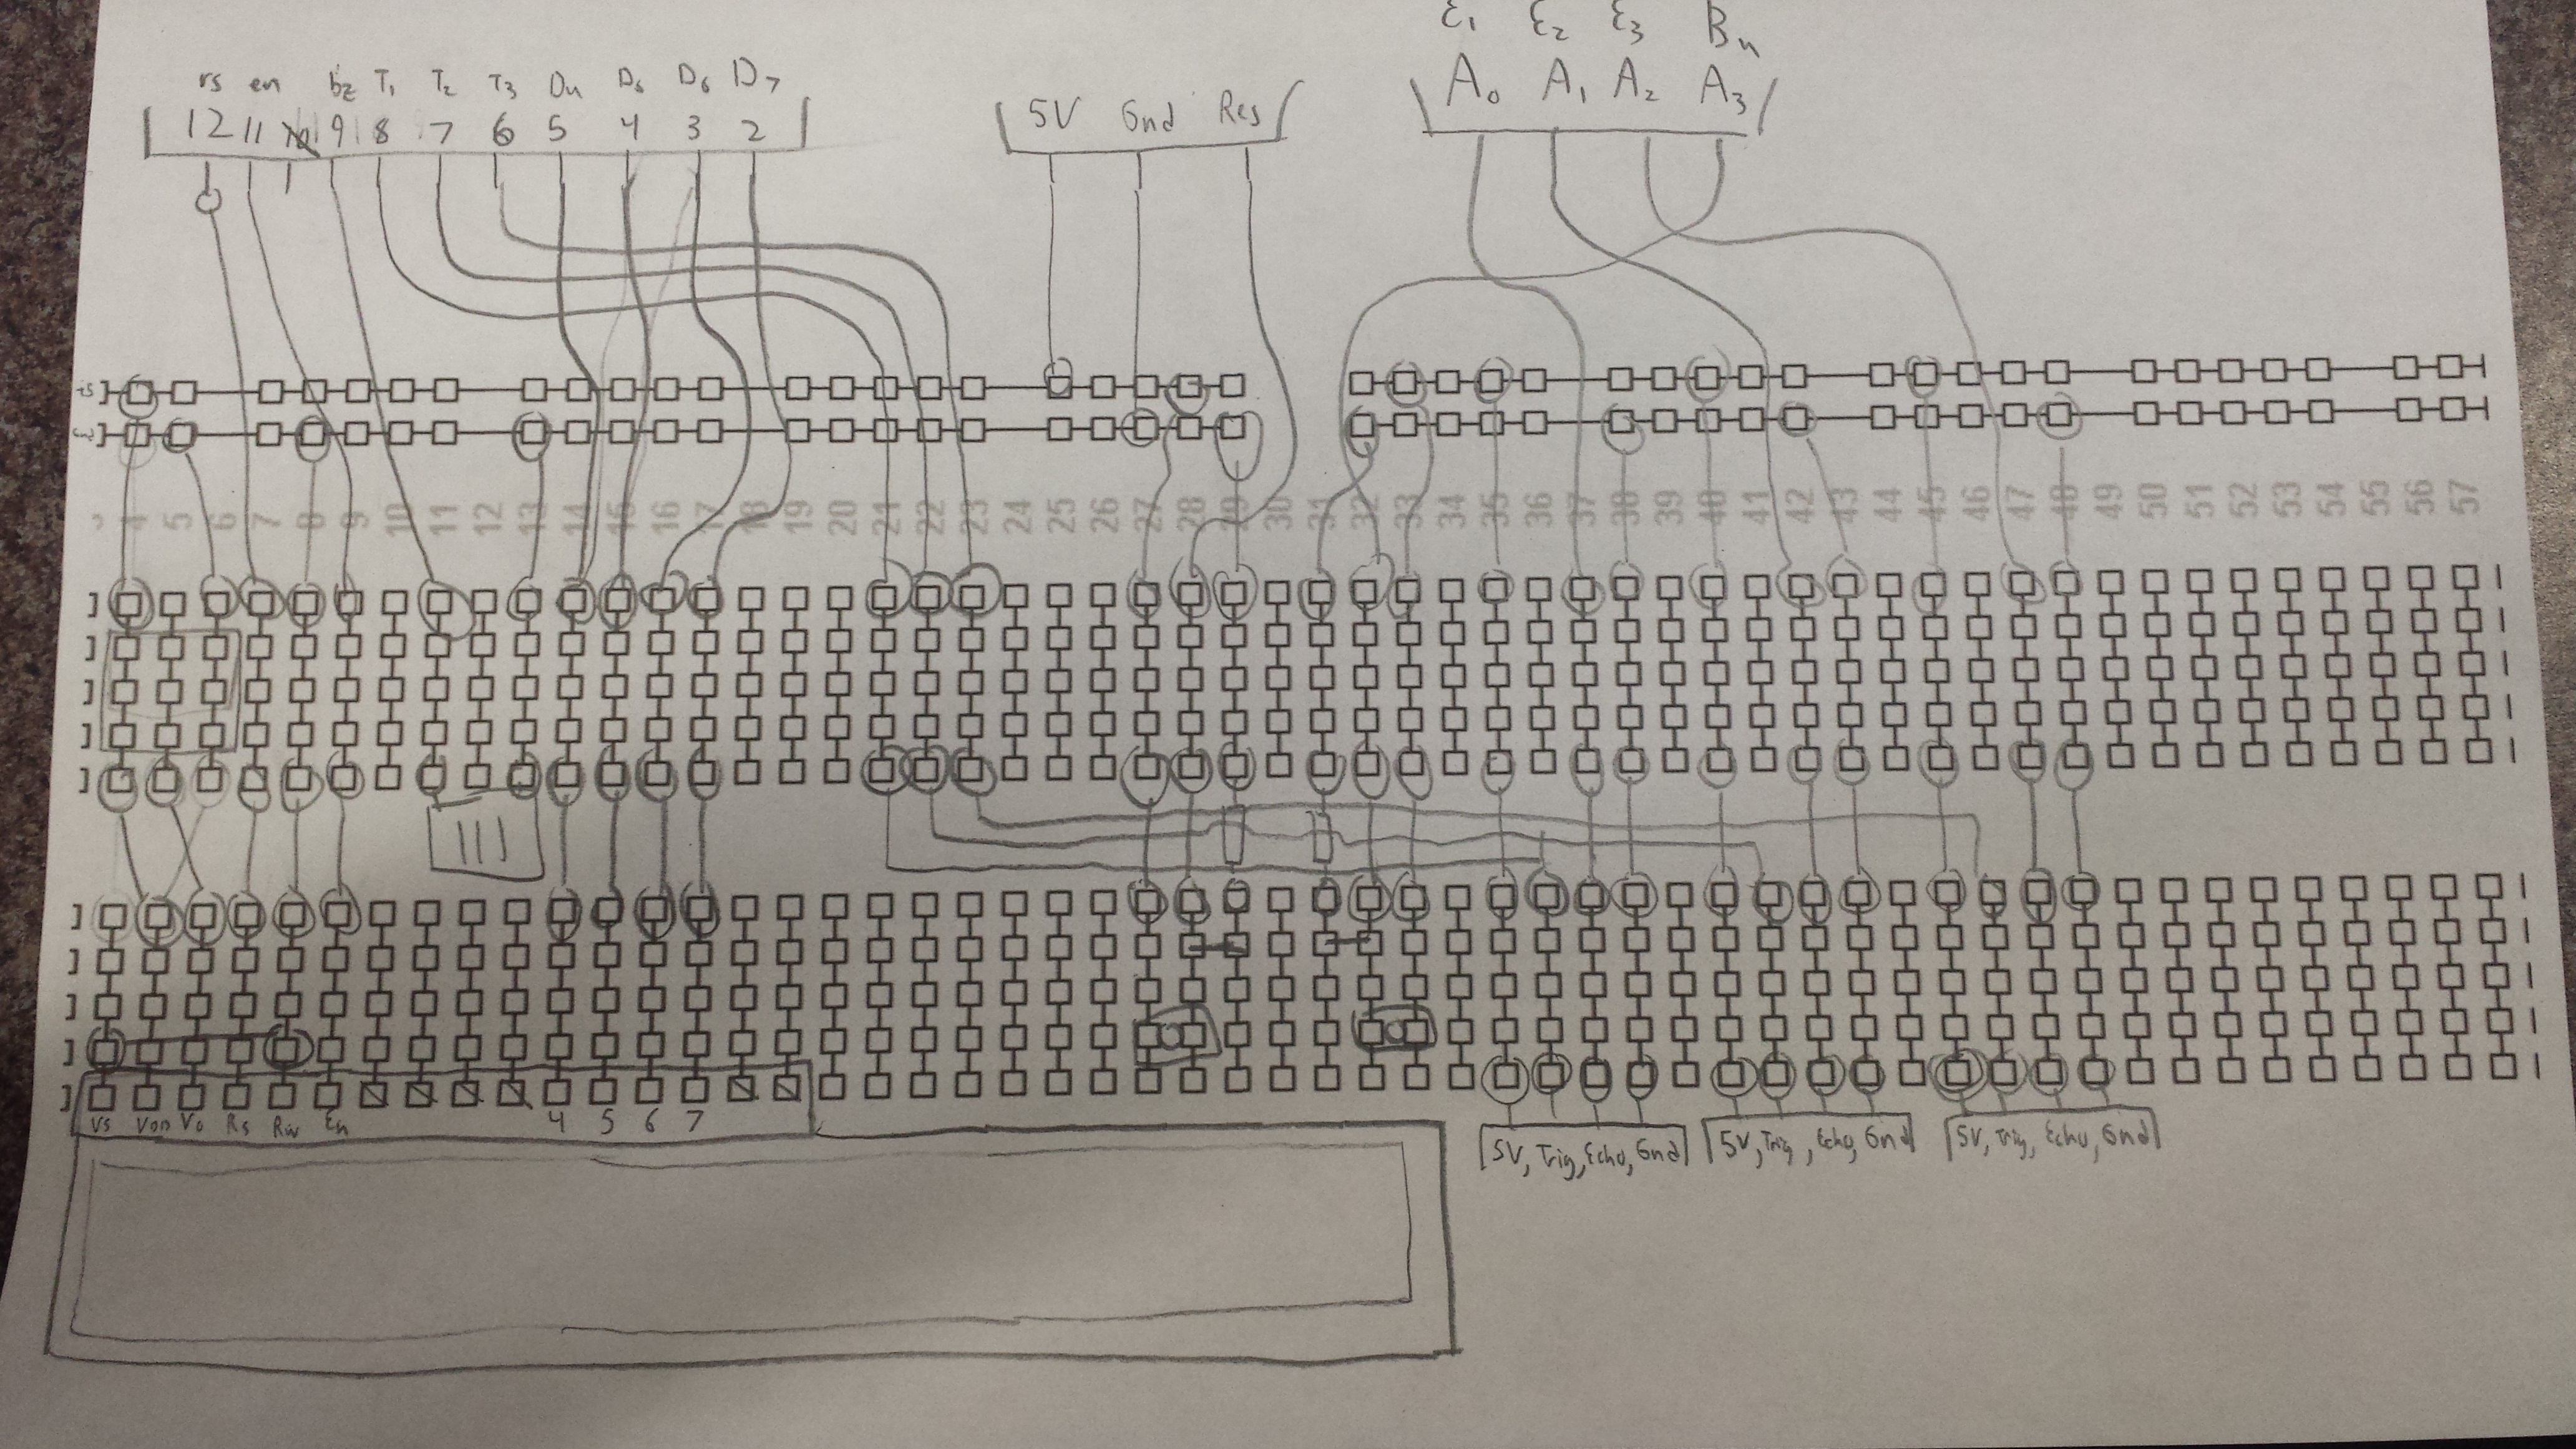 E₁ E₂ E₃ Bn
rs en bz T₁ T₂ T₃ D₄ D₅ D₆ D₇
A₀ A₁ A₂ A₃
12 11 10 9 8 7 6 5 4 3 2
5V Gnd Res
4 5 6 7 8 9 10 11 12 13 14 15 16 17 18 19 20 21 22 23 24 25 26 27 28 29 30 31 32 33 34 35 36 37 38 39 40 41 42 43 44 45 46 47 48 49 50 51 52 53 54 55 56 57
Vs Von Vo Rs Rw En 4 5 6 7
5V, Trig, Echo, Gnd
5V, Trig, Echo, Gnd
5V, Trig, Echo, Gnd